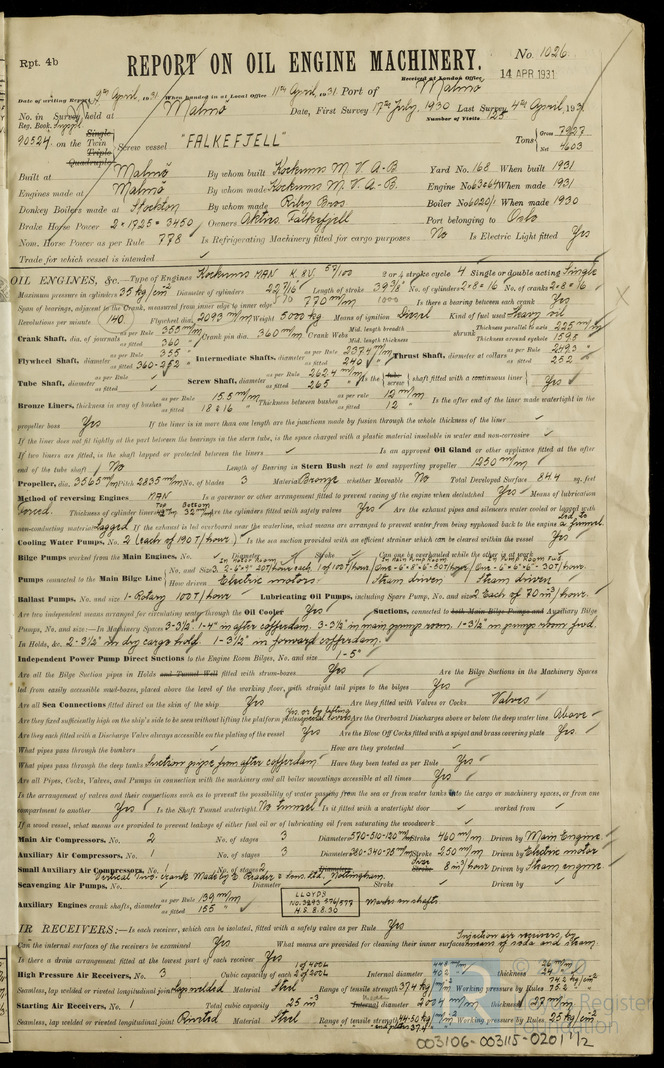 Rpt. 4b
REPORT ON OIL ENGINE MACHINERY.
No. 1026
Received at London Office
14 APR 1931
Date of writing Report 9th April, 1931 When handed in at Local Office 11th April, 31 Port of Malmö
No. in Survey held at Malmö Date, First Survey 17th July, 1930 Last Survey 4th April, 1931
Reg. Book. Suppl. Number of Visits 125
90524 on the Single Twin Triple Quadruple Screw vessel "FALKEFJELL" Tons Gross 7927 Net 4603
Built at Malmö By whom built Kockums M. V. A-B Yard No. 168 When built 1931
Engines made at Malmö By whom made Kockums M. V. A-B. Engine No. 63 & 64 When made 1931
Donkey Boilers made at Stockton By whom made Riley Bros Boiler No. 6020/1 When made 1930
Brake Horse Power 2 × 1725 = 3450 Owners Aktns. Falkefjell Port belonging to Oslo
Nom. Horse Power as per Rule 778 Is Refrigerating Machinery fitted for cargo purposes No Is Electric Light fitted Yes
Trade for which vessel is intended
OIL ENGINES, &c.—Type of Engines Kockums MAN K. 8V. 57/100 2 or 4 stroke cycle 4 Single or double acting Single
Maximum pressure in cylinders 35 kg/cm² Diameter of cylinders 22 7/16 Length of stroke 39 3/8 No. of cylinders 2×8=16 No. of cranks 2×8=16
Span of bearings, adjacent to the Crank, measured from inner edge to inner edge 770 m/m 1000 Is there a bearing between each crank Yes
Revolutions per minute 140 Flywheel dia. 2093 m/m Weight 5000 kg Means of ignition Diesel Kind of fuel used Heavy oil
Crank Shaft, dia. of journals as per Rule 355 m/m as fitted 360 Crank pin dia. 360 m/m Crank Webs Mid. length breadth Mid. length thickness shrunk Thickness parallel to axis 225 m/m Thickness around eyehole 159.5
Flywheel Shaft, diameter as per Rule 355 as fitted 360-252 Intermediate Shafts, diameter as per Rule 237.4 m/m as fitted 240 Thrust Shaft, diameter at collars as per Rule 249.3 as fitted 252
Tube Shaft, diameter as per Rule as fitted Screw Shaft, diameter as per Rule 262.4 m/m as fitted 265 Is the tube screw shaft fitted with a continuous liner Yes
Bronze Liners, thickness in way of bushes as per Rule 15.5 m/m as fitted 18 & 16 Thickness between bushes as per rule 12 m/m as fitted 12 Is the after end of the liner made watertight in the
propeller boss Yes If the liner is in more than one length are the junctions made by fusion through the whole thickness of the liner
If the liner does not fit tightly at the part between the bearings in the stern tube, is the space charged with a plastic material insoluble in water and non-corrosive
If two liners are fitted, is the shaft lapped or protected between the liners Is an approved Oil Gland or other appliance fitted at the after
end of the tube shaft No Length of Bearing in Stern Bush next to and supporting propeller 1250 m/m
Propeller, dia. 3565 m/m Pitch 2835 m/m No. of blades 3 Material Bronze whether Moveable No Total Developed Surface 84.4 sq. feet
Method of reversing Engines MAN Is a governor or other arrangement fitted to prevent racing of the engine when declutched Yes Means of lubrication
forced. Thickness of cylinder liners Top Bottom 32 m/m Are the cylinders fitted with safety valves Yes Are the exhaust pipes and silencers water cooled or lagged with
non-conducting material Lagged If the exhaust is led overboard near the waterline, what means are arranged to prevent water from being syphoned back to the engine Led to a funnel.
Cooling Water Pumps, No. 2 (each of 190 T/hour) Is the sea suction provided with an efficient strainer which can be cleared within the vessel Yes
Bilge Pumps worked from the Main Engines, No. Diameter Stroke Can one be overhauled while the other is at work
Pumps connected to the Main Bilge Line No. and Size In Motor Room In Main Pump Room In Pump Room Fwd.
How driven Electric motors. Steam driven Steam driven
Ballast Pumps, No. and size 1-Rotary 100 T/hour Lubricating Oil Pumps, including Spare Pump, No. and size 2 Each of 70 m³/hour.
Are two independent means arranged for circulating water through the Oil Cooler Yes Suctions, connected to both Main Bilge Pumps and Auxiliary Bilge
Pumps, No. and size:—In Machinery Spaces 3-3½" 1-4" in after cofferdam. 3-3½" in main pump room 1-3½" in pump room fwd.
In Holds, &c. 2-3½" in dry cargo hold. 1-3½" in forward cofferdam.
Independent Power Pump Direct Suctions to the Engine Room Bilges, No. and size 1-5"
Are all the Bilge Suction pipes in Holds and Tunnel Well fitted with strum-boxes Yes Are the Bilge Suctions in the Machinery Spaces
led from easily accessible mud-boxes, placed above the level of the working floor, with straight tail pipes to the bilges Yes
Are all Sea Connections fitted direct on the skin of the ship Yes Are they fitted with Valves or Cocks Valves
Are they fixed sufficiently high on the ship's side to be seen without lifting the platform plates Yes, or by lifting special covers Are the Overboard Discharges above or below the deep water line Above
Are they each fitted with a Discharge Valve always accessible on the plating of the vessel Yes Are the Blow Off Cocks fitted with a spigot and brass covering plate Yes.
What pipes pass through the bunkers How are they protected
What pipes pass through the deep tanks Suction pipe from after cofferdam Have they been tested as per Rule Yes
Are all Pipes, Cocks, Valves, and Pumps in connection with the machinery and all boiler mountings accessible at all times Yes
Is the arrangement of valves and their connections such as to prevent the possibility of water passing from the sea or from water tanks into the cargo or machinery spaces, or from one
compartment to another Yes Is the Shaft Tunnel watertight No tunnel Is it fitted with a watertight door worked from
If a wood vessel, what means are provided to prevent leakage of either fuel oil or lubricating oil from saturating the woodwork
Main Air Compressors, No. 2 No. of stages 3 Diameters 570-510-120 m/m Stroke 460 m/m Driven by Main Engine
Auxiliary Air Compressors, No. 1 No. of stages 3 Diameters Stroke 250 m/m Driven by Electric motor
Small Auxiliary Air Compressors, No. 1 No. of stages 2 Diameters Stroke 8 m³/hour Driven by Steam engine
Vertical two-crank Made by E. Reader & Sons Ltd. Nottingham.
Scavenging Air Pumps, No. Diameter Stroke Driven by
Auxiliary Engines crank shafts, diameter as per Rule 139 m/m as fitted 155
LLOYDS
H.S. 8.8.30
Marks on shafts
IR RECEIVERS:—Is each receiver, which can be isolated, fitted with a safety valve as per Rule Yes
Can the internal surfaces of the receivers be examined Yes What means are provided for cleaning their inner surfaces Injection air receivers, by means of soda and steam.
Is there a drain arrangement fitted at the lowest part of each receiver Yes
High Pressure Air Receivers, No. 3 Cubic capacity of each Internal diameter thickness
Seamless, lap welded or riveted longitudinal joint Lapwelded Material Steel Range of tensile strength Working pressure by Rules 75.2
Starting Air Receivers, No. 1 Total cubic capacity 25 m³ Internal diameter 2034 m/m thickness 27 m/m
Seamless, lap welded or riveted longitudinal joint Riveted Material Steel Range of tensile strength 44-50 kg/m² Working pressure by Rules 25 kg/cm²
Lloyd's Register
Foundation
003106-003115-0201 1/2